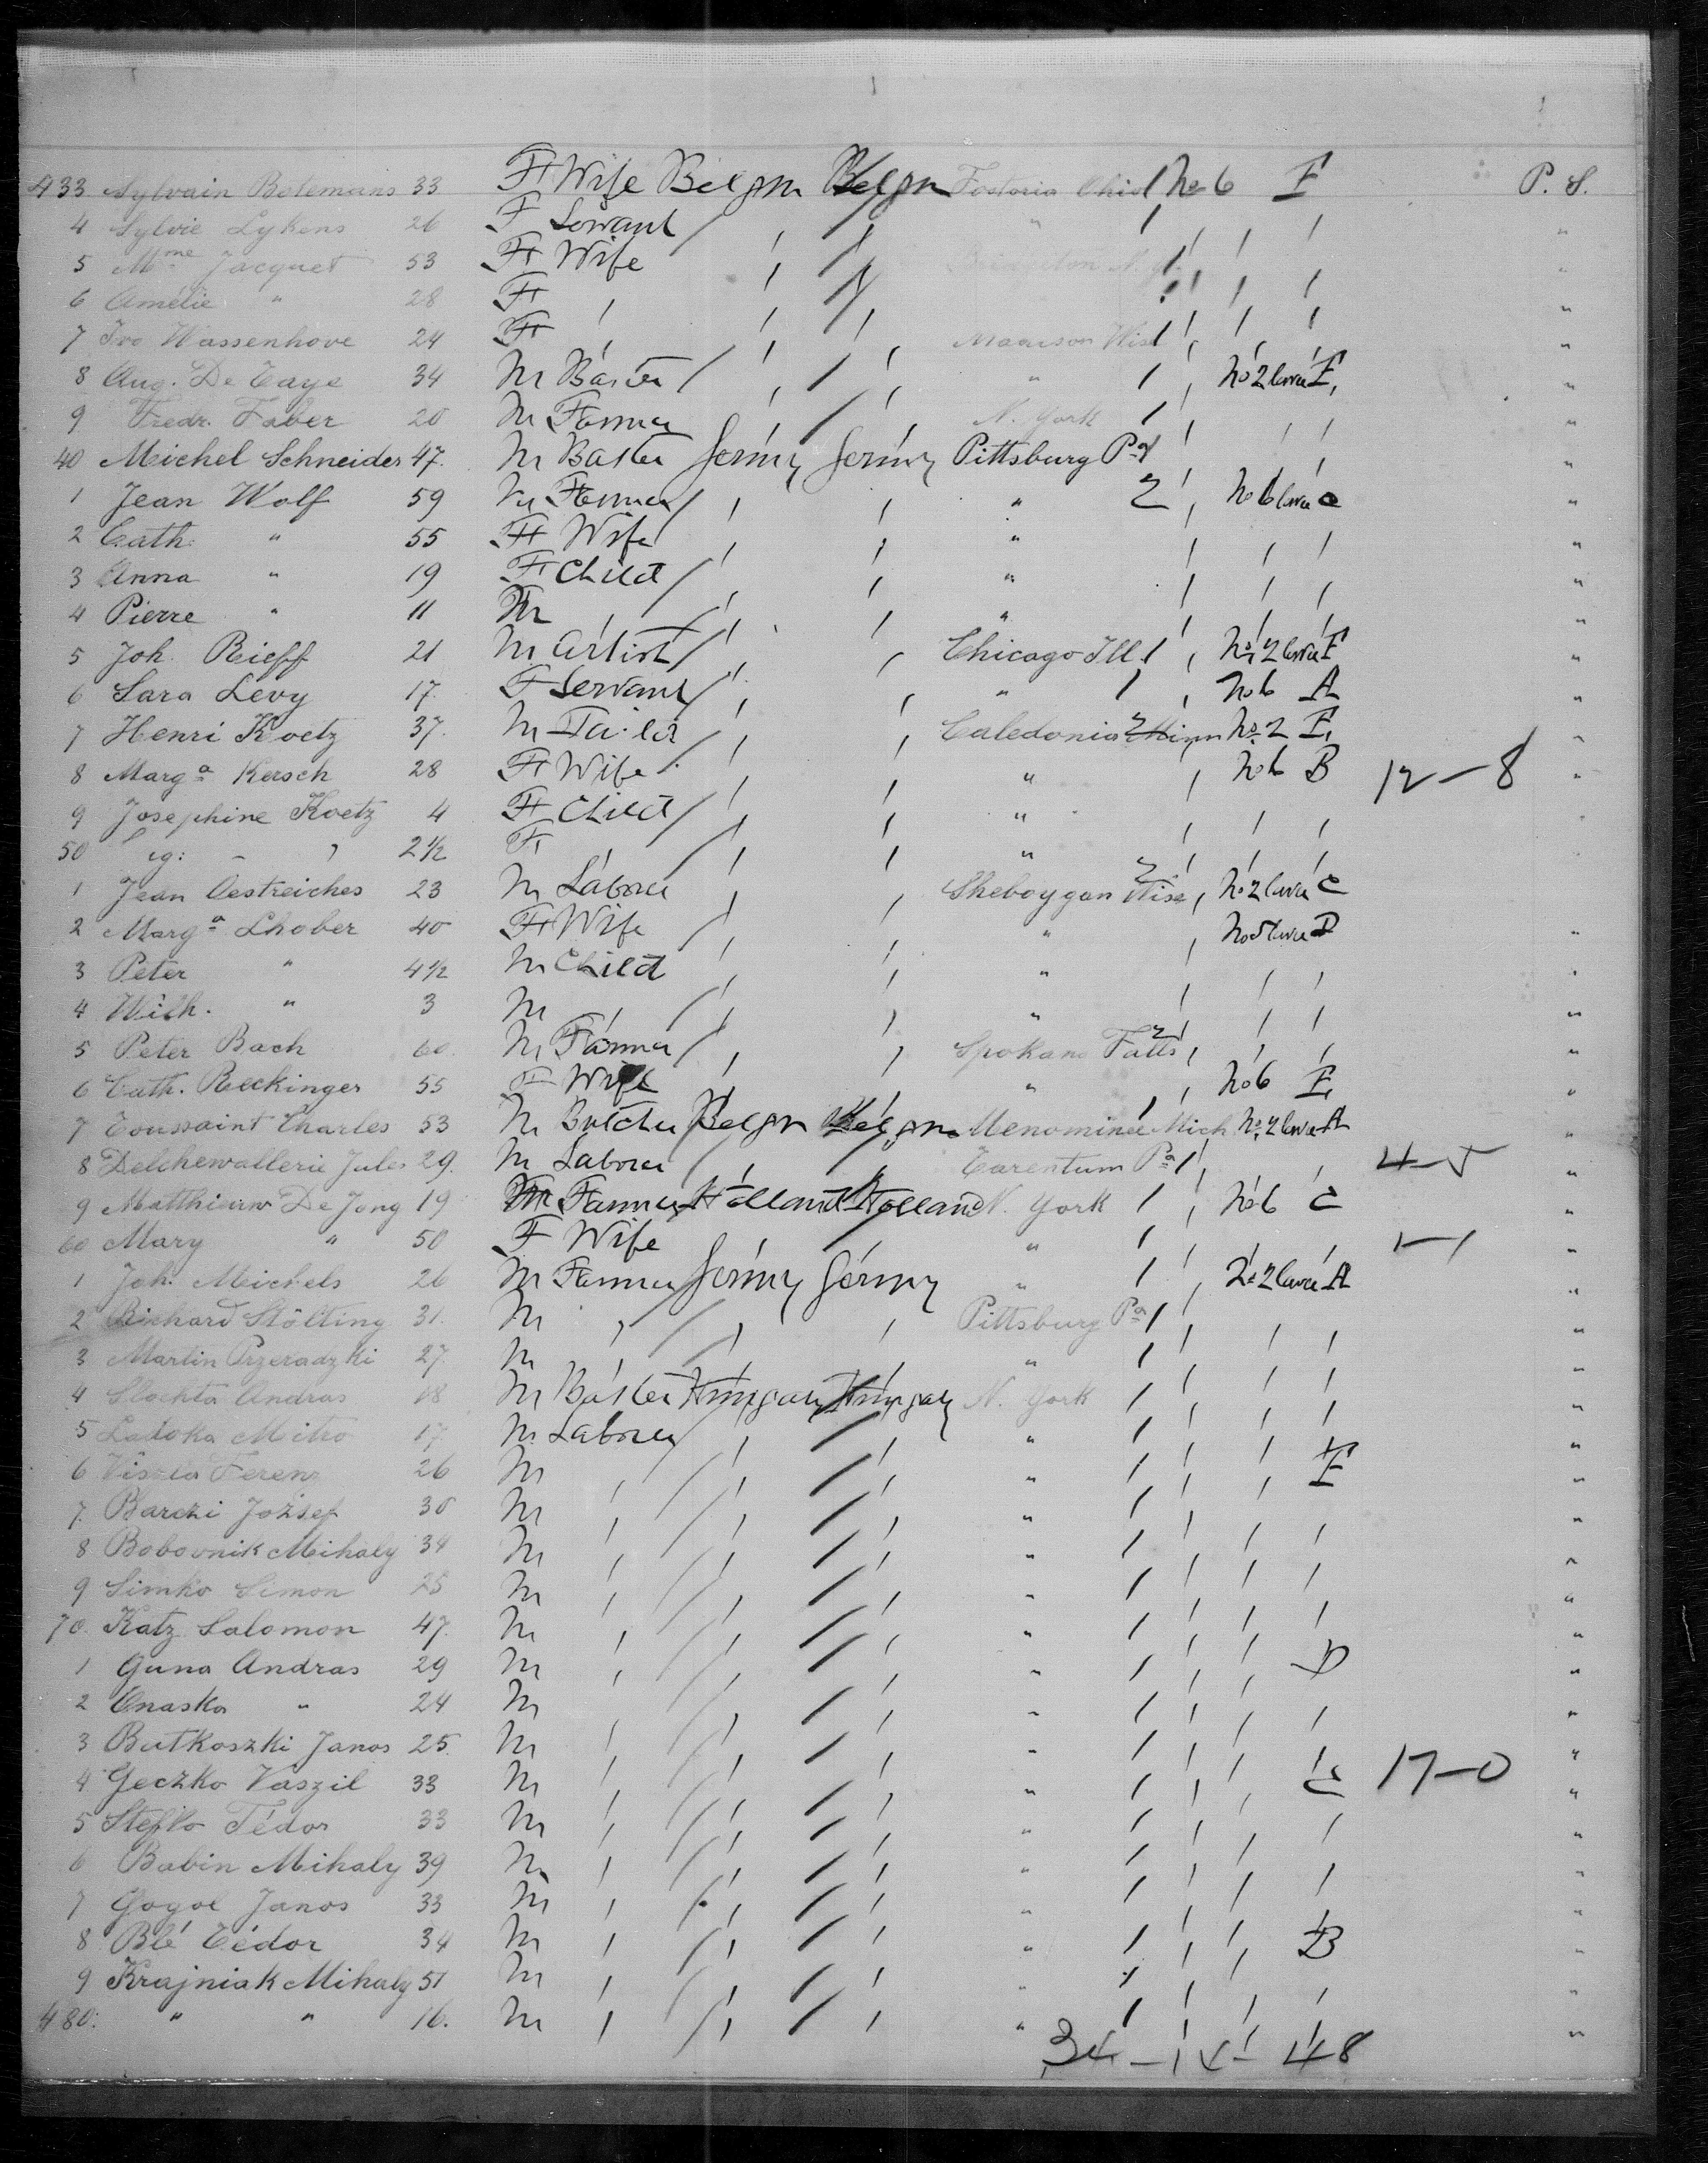 433 Sylvain Betemans 33 F Wife Belgm Belgm Fostoria Ohio 1 No 6 E P. S.
4 Sylvie Lykens 26 F Servant / , / , " 1 , , , "
5 Mme Jacquet 53 F Wife , / , N. 1 , , , "
6 Amélie " 28 F , , / , , , , "
7 Ivo Wassenhove 24 F , , , Madison Wis 1 , , , "
8 Aug. De Taye 34 M / , / , " 1 , No 2 E, "
9 Fredr. Faber 20 M Farmer , / , N. York 1 , , , "
40 Meichel Schneider 47. M Germy Germy Pittsburg Pa 1 , , , "
1 Jean Wolf 59 M Farmer / , , " 2 , No 6 C "
2 Cath. " 55 F Wife , , " , , , "
3 Anna " 19 F Child / , , " , , , "
4 Pierre " 11 M , / , , " , , , "
5 Joh. Rieff 21 M Artist / , , Chicago Ill 1 , No 2 E "
6 Sara Levy 17. F Servant / , , " 1 , No 6 A "
7 Henri Koetz 37. M Tailor / , , Caledonia Minn 2 No 2 E, "
8 Marga Kersch 28 F Wife / , , " , No 6 B 12-8 "
9 Josephine Koetz 4 F Child / , , " , , , "
50 " , 2½ F , / , , " , , , "
1 Jean Oestreiches 23 M Laborer / , , Sheboygan Wisc 2 , No 2 C "
2 Marga Lhober 40 F Wife / , , " , No 5 D "
3 Peter " 4½ M Child , , " , , , "
4 Wilh. " 3 M , / , , " , , , "
5 Peter Bach 60 M Farmer / , , Spokane Falls 2 , , , "
6 Cath. Reckinger 55 F Wife , , " , No 6 E, "
7 Toussaint Charles 53 M Butcher Belgm Belgm Menominee Mich 1 No 2 A "
8 Delchewallerie Jules 29. M Laborer / , / , Tarentum Pa 1 , , 4-5 "
9 Matthieuw De Jong 19 M Farmer Holland Holland N. York 1 , No 6 C "
60 Mary " 50 F Wife , , " 1 , , , 1-1 "
1 Joh. Meichels 26 M Farmer Germy Germy " 1 , No 2 A "
2 Richard Stölting 31. M , / , , Pittsburg Pa 1 , , , "
3 Martin Przeradzki 27. M , / , , " 1 , , , "
4 Andras 18 M Hungary Hungary N. York 1 , , , "
5 Mitro 17 M Laborer / , / , " 1 , , , "
6 Ferenz 26 M , / , / , " 1 , , E "
7. Barczi Jozsef 30 M , / , / , " 1 , , , "
8 Bobovnik Mihaly 34 M , / , / , " 1 , , , "
9 Simko Simon 25 M , / , / , " 1 , , , "
70. Katz Salomon 47. M , / , / , " 1 , , , "
1 Guna Andras 29 M , / , / , " 1 , , D "
2 Onasko " 24 M , / , / , " 1 , , , "
3 Butkoszki Janos 25. M , / , / , " 1 , , , "
4 Geczko Vaszil 33 M , / , / , " 1 , , C 17-0 "
5 Steflo Tédor 33 M , / , / , " 1 , , , "
6 Babin Mihaly 39 M , / , / , " 1 , , , "
7 Gogol Janos 33 M , / , / , " 1 , , , "
8 Blé Tédor 34 M , / , / , " 1 , , B "
9 Krajniak Mihaly 51 M , / , / , " 1 , , , "
480. " " 16. M , / , / , " 1 , , , "
34-14-48